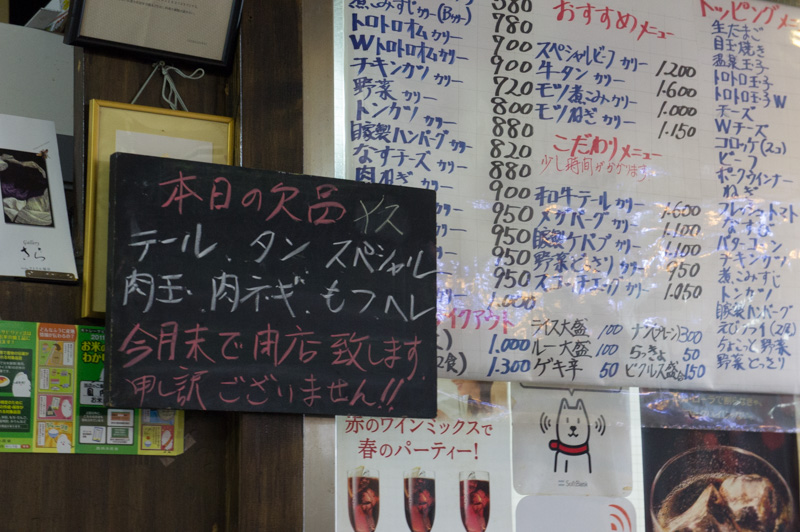 本日の欠品
テール、タン スペシャル
肉玉、肉ネギ、もつ
今月末で閉店致します
申し訳ございません!!
煮こみすじカリー(Bカリー)
トロトロオムカリー
Wトロトロオムカリー
チキンカツカリー
野菜カリー
トンカツカリー
燻製ハンバーグカリー
なすチーズカリー
肉ねぎ
580
780
900
900
720
800
880
820
880
900
950
950
950
950
1.000
おすすめメニュー
スペシャルビーフカリー 1.200
牛タンカリー 1.600
モツ煮こみカリー 1.000
モツねぎカリー 1.150
こだわりメニュー
少し時間がかかります
和牛テールカリー 1.600
メガバーグカリー 1.100
燻製ケバブカリー 1.100
野菜どっさりカリー 950
スコッチエッグカリー 1.050
イクアウト
1.000
2食) 1.300
ライス大盛 100
ルー大盛 100
ゲキ辛 50
ナスorプレーン 300
らっきょ 50
ピクルス盛 150
トッピングメ
生たまご
目玉焼き
温泉玉子
トロトロ玉子
トロトロ玉子W
チーズ
Wチーズ
コロッケ(2コ)
ビーフ
ポークウインナー
ねぎ
フレッシュトマト
なすび
バターコーン
チキンカツ
煮こみすじ
トンカツ
燻製ハンバーグ
えびフライ(2尾)
ちょこっと野菜
野菜どっさり
Gallery
さら
お米の
わかり
赤のワインミックスで
春のパーティー!
SoftBank